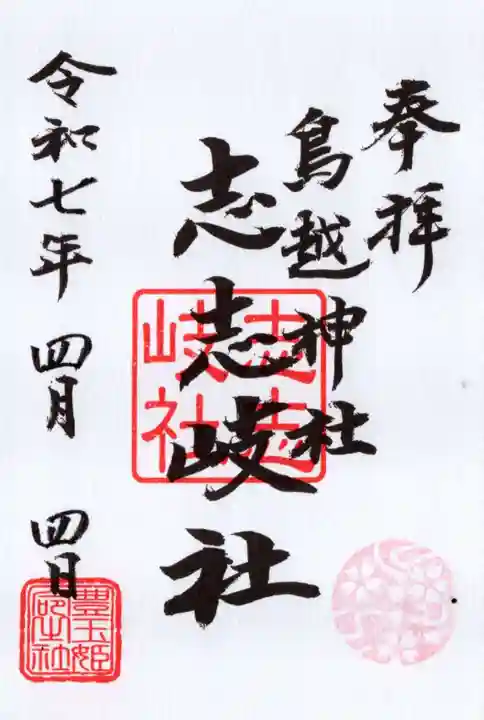 奉拝
鳥越神社
志志岐社
志志岐社
令和七年 四月 四日
豊玉姫
神社